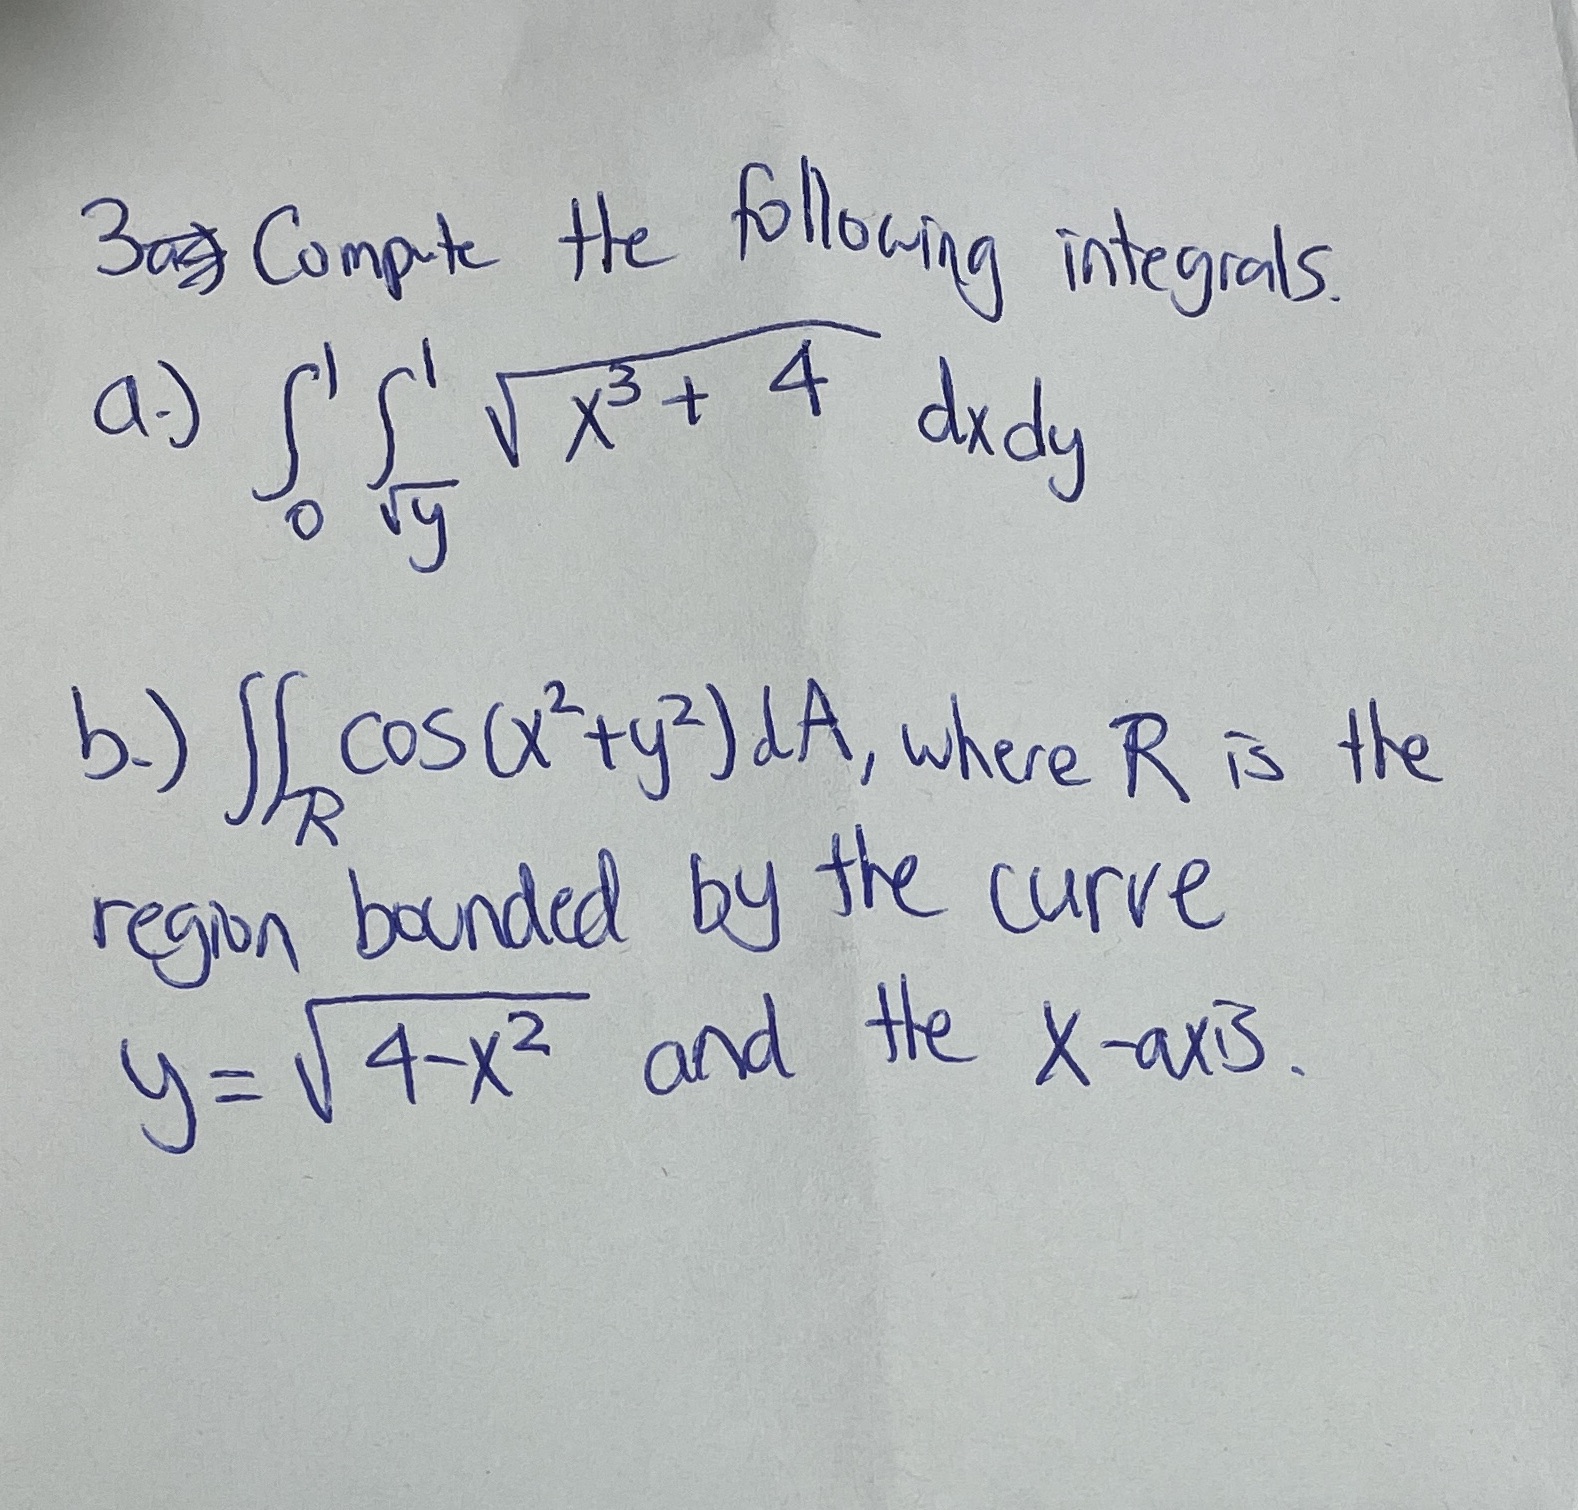 3 Compute the following integrals.
a.) ∫₀¹ ∫_√y¹ √(x³ + 4) dxdy
b.) ∬_R cos(x²+y²)dA, where R is the
region bounded by the curve
y = √(4-x²) and the x-axis.